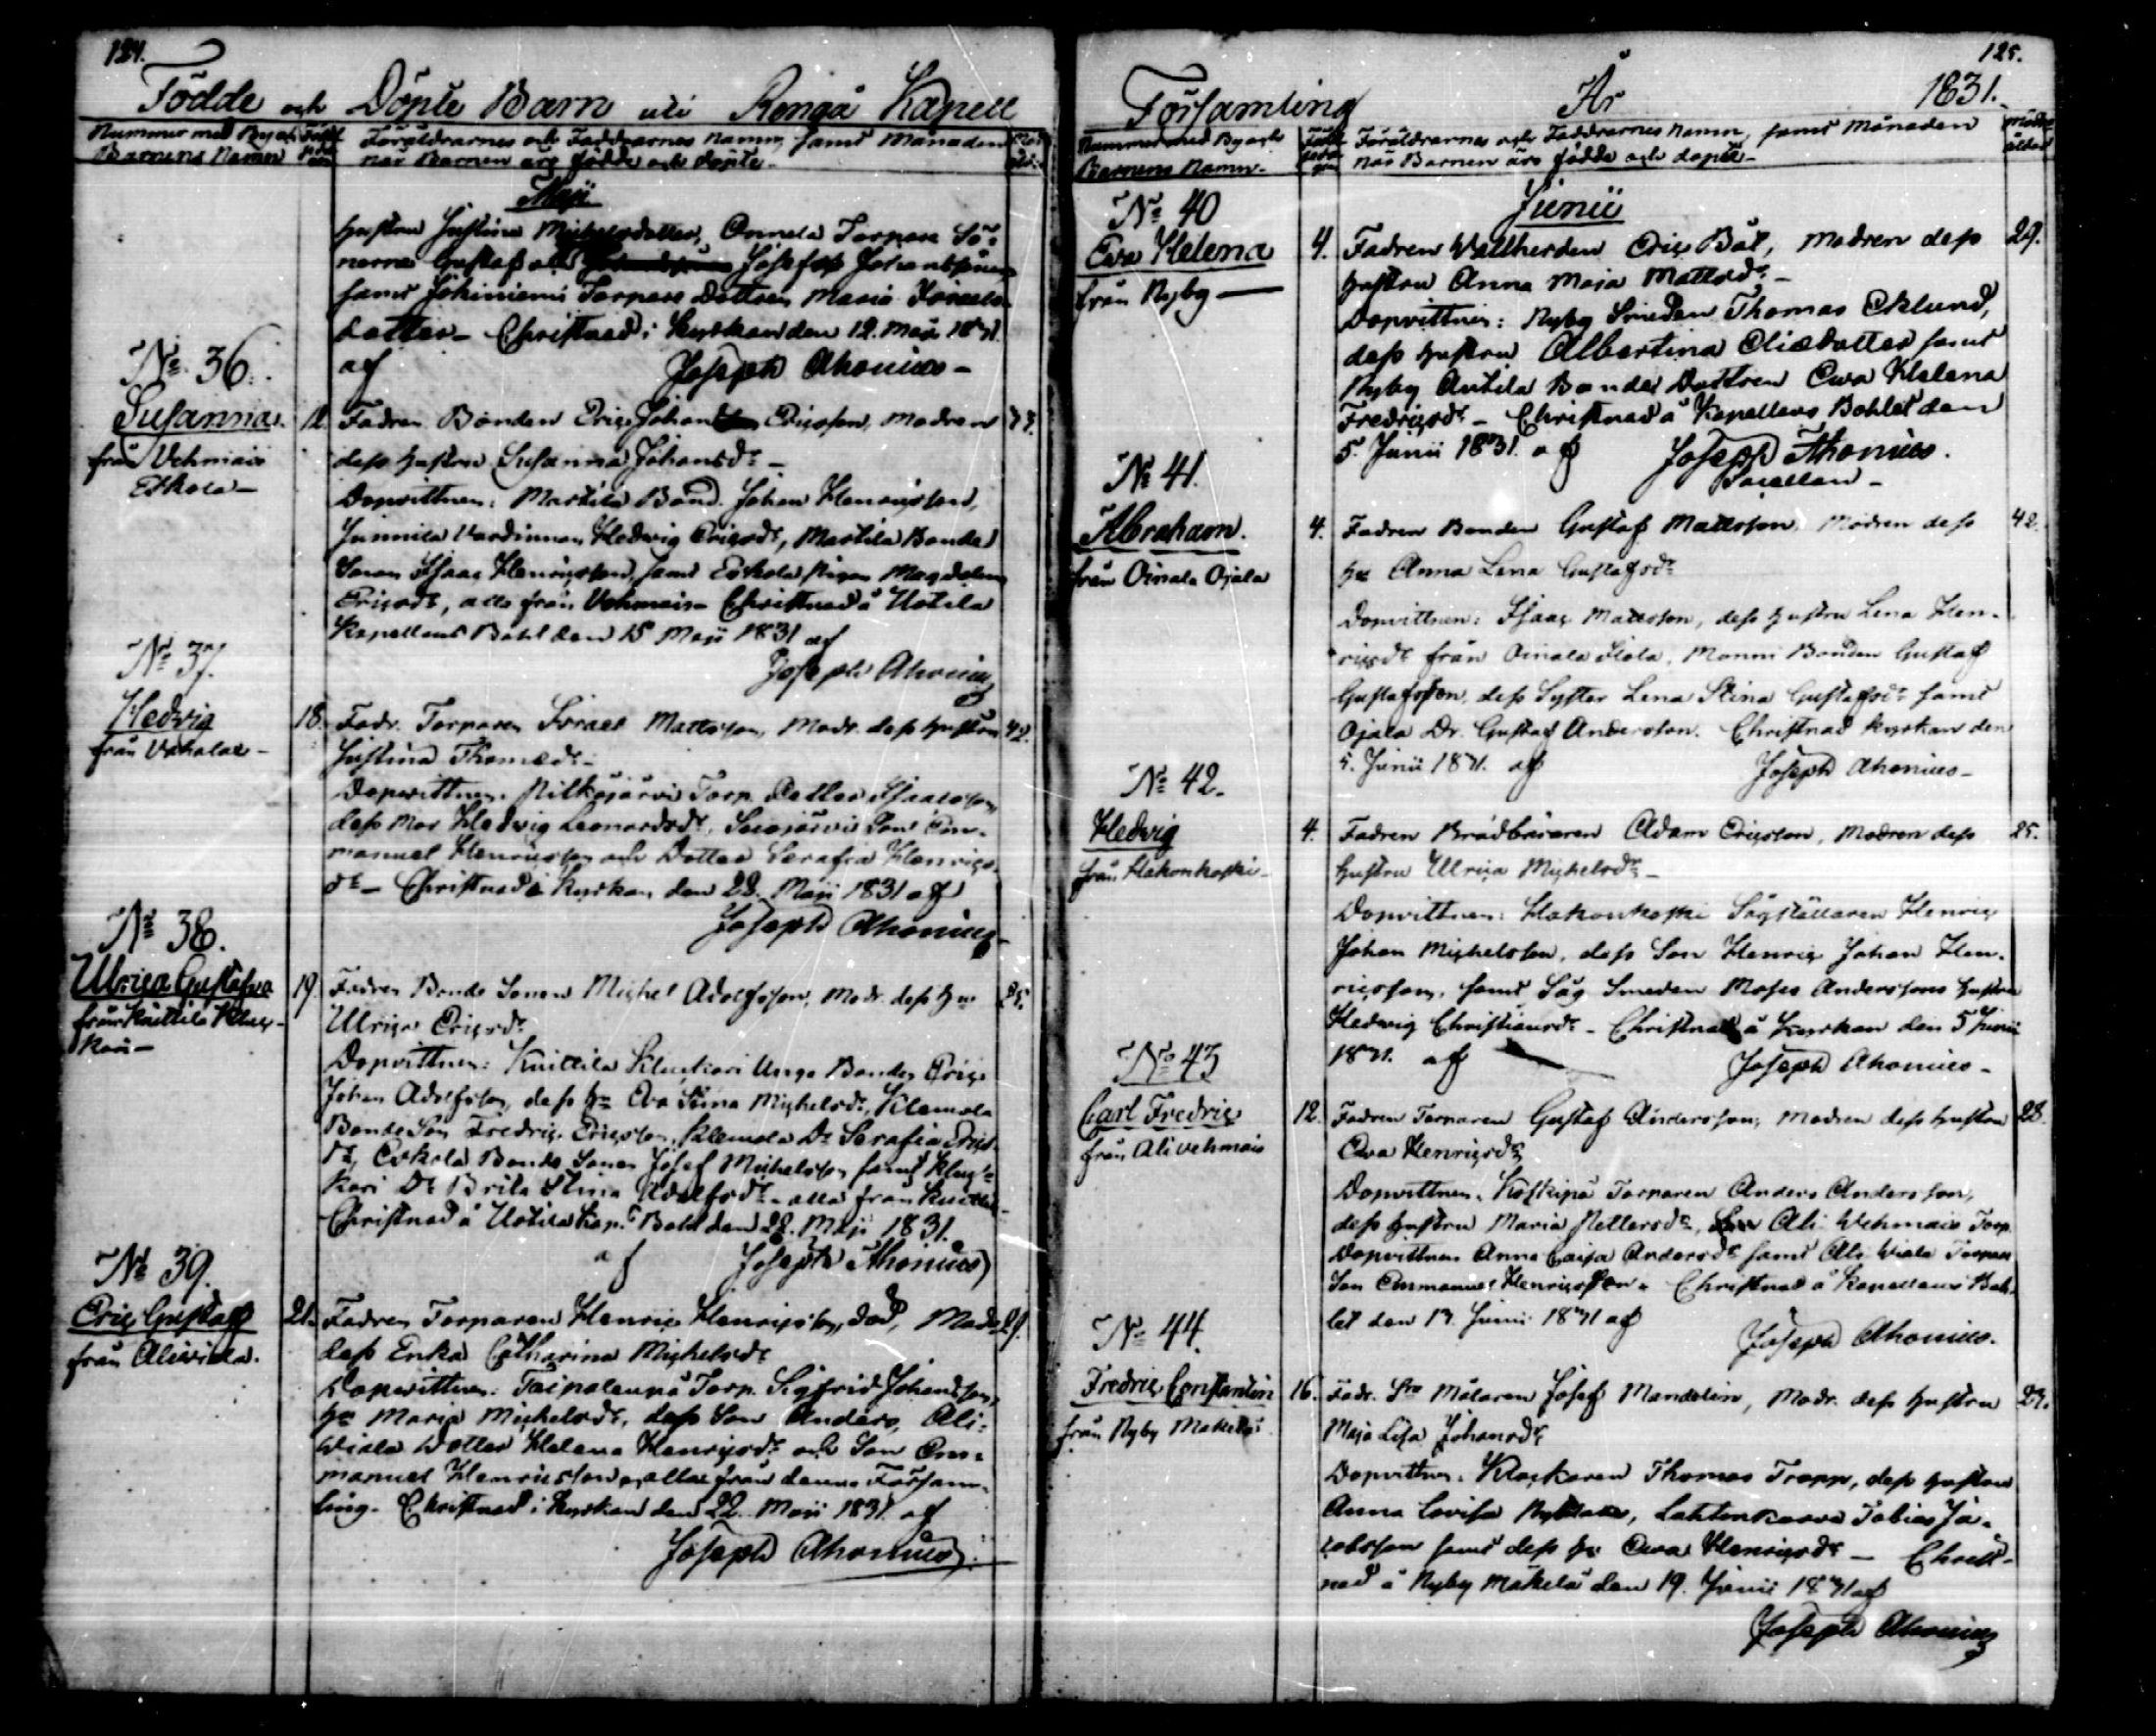 124.
Födde och Döpte Barn uti Rengå Kapell
Nummer med By och
Barnens Namn
Föräldrarnes och Faddrarnes Namn, samt Månaden
när Barnen äro födde och döpte.
Maji
hustru Justina Michelsdotter, Annela Torpare Sö-
nerne Gustaf och Josef Johanssöner
samt Jokiniemi Torpare Dottren Maria Israels-
dotter. Christnad i Kyrkan den 12. Maji 1831.
af Joseph Ahonius
No 36.
Susanna
från Vehmais
Eskola
12. Fadren Bonden Eric Johan Ericsson, Modren 33.
dess hustru Susanna Johansdr
Dopvittnen: Marttila Bond. Johan Henricsson,
Junnila Värdinnan Hedwig Ericsdr, Marttila Bonde
Sonen Isaac Henricsson, samt Eskola Pigan Magdalena
Ericsdr, alla från Vehmais. Christnad å Uotila
Kapellans Bohl den 15 Maji 1831 af
Joseph Ahonius
No 37.
Hedvig
från Vahalae
18. Fadr. Torparen Israel Mattsson, Modr. dess hustru 42.
Justina Thomædr
Dopvittnen: Torp. Isaacsson,
dess Mor Hedvig Leonardsdr, Son Em-
manuel Henricsson och Dotter Serafia Henrics-
dr. Christnad i Kyrkan den 22. Maji 1831 af
Joseph Ahonius
No 38.
Ulrica Gustafva
från Knittilä Kluc-
kari
19 Fadren Bonde Sonen Michel Adolfsson, Modr. dess hu 25.
Ulrica Ericsdr
Dopvittnen: Knittilä Kluckari Unga Bonden Eric
Johan Adolfsson, dess hu Eva Stina Michelsdr, Klemola
Bonde Son Fredric Ericsson, Klemola Dr Serafia Erics-
dr, Eskola Bonde Sonen Josef Michelsson samt Kluc-
kari Dr Brita Stina Adolfsdr. alla från Knittilä
Christnad å Uotila Kap. Bohl den 22. Maji 1831.
af Joseph Ahonius
No 39.
Eric Gustaf
från Aliviala.
21. Fadren Torparen Henric Henricsson, död, Modr 29.
dess Enka Catharina Michelsdr
Dopvittnen: Taipalenpä Torp. Sigfrid Johansson,
hu Maria Michelsdr, dess Son Anders, Ali-
Wiala Dotter Helena Henricsdr och Son Em-
manuel Henricsson, alla från denna Försam-
ling. Christnad i Kyrkan den 22. Maji 1831. af
Joseph Ahonius
125.
Församling År 1831.
Nummer med By och
Barnens Namn.
Föräldrarnes och Faddrarnes Namn, samt Månaden
när Barnen äro födde och döpte
Junii
No 40
Eva Helena
från Nyby
4. Fadren Vallherden Eric Båt, Modren dess 29.
hustru Anna Maja Mattsdr
Dopvittnen: Nyby Smeden Thomas Eklund,
dess hustru Albertina Eliædotter samt
Nyby Anttila Bonde Dottren Ewa Helena
Fredricsdr. Christnad å Kapellans Bohlet den
5. Junii 1831. af Joseph Ahonius.
Sacellan
No 41.
Abraham.
från Oinala Ojala
4. Fadren Bonden Gustaf Mattsson, Modren dess 42.
hu Anna Lena Gustafsdr
Dopvittnen: Isaac Mattsson, dess hustru Lena Hen-
ricsdr från Oinala Isola, Monni Bonden Gustaf
Gustafsson, dess Syster Lena Stina Gustafsdr samt
Ojala Dr. Gustaf Andersson. Christnad Kyrkan den
5. Junii 1831. af Joseph Ahonius
No 42.
Hedvig
från Hakonkoski
4. Fadren Brädbäraren Adam Ericsson, Modren dess 25.
hustru Ulrica Michelsdr
Dopvittnen: Hakonkoski Sågställaren Henric
Johan Michelsson, dess Son Henric Johan Hen-
ricsson, samt Såg Smeden Moses Anderssons hustru
Hedwig Christiansdr. Christnad å Kyrkan den 5 Junii
1831. af Joseph Ahonius
No 43
Carl Fredric
från Alivehmais
12. Fadren Torparen Gustaf Andersson, Modren dess hustru 28.
Ewa Henricsdr
Dopvittnen: Koskipä Torparen Anders Andersson,
dess hustru Maria Pettersdr, Ali Wehmais Torp.
Dopvittnen Anna Caisa Andersdr samt Ali Wiala Torpare
Son Emmanuel Henricsson. Christnad å Kapellans Boh-
let den 13. Junii 1831 af
Joseph Ahonius.
No 44.
Fredric Constantin
från Nyby Mäkelä
16. Fadr. Målaren Josef Mandelin, Modr. dess hustru 27.
Maja Lisa Johansdr
Dopvittnen: Klockaren Thomas Trapp, dess hustru
Anna Lovisa Tobias Ja-
cobsson samt dess hu Ewa Henricsdr — Christ-
nad å Nyby Mäkelä den 19. Junii 1831 af
Joseph Ahonius